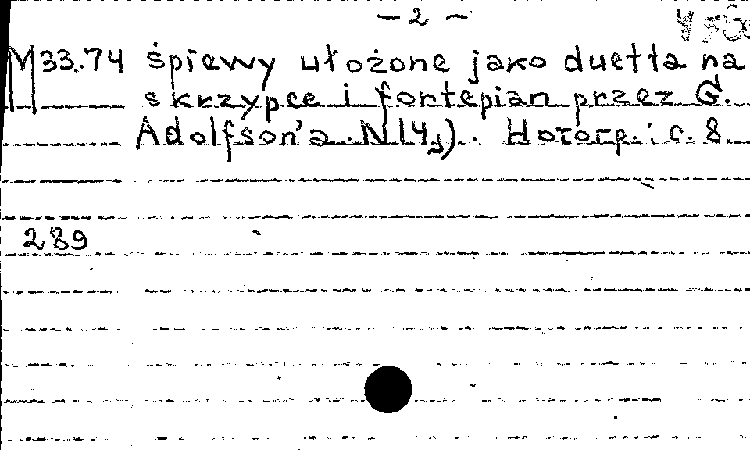 - 2 -
M33.74 śpiewy ułożone jako duetta na
skrzypce i fortepian przez G.
Adolfson'a. N(4). Нотогр.: с. 8.
289